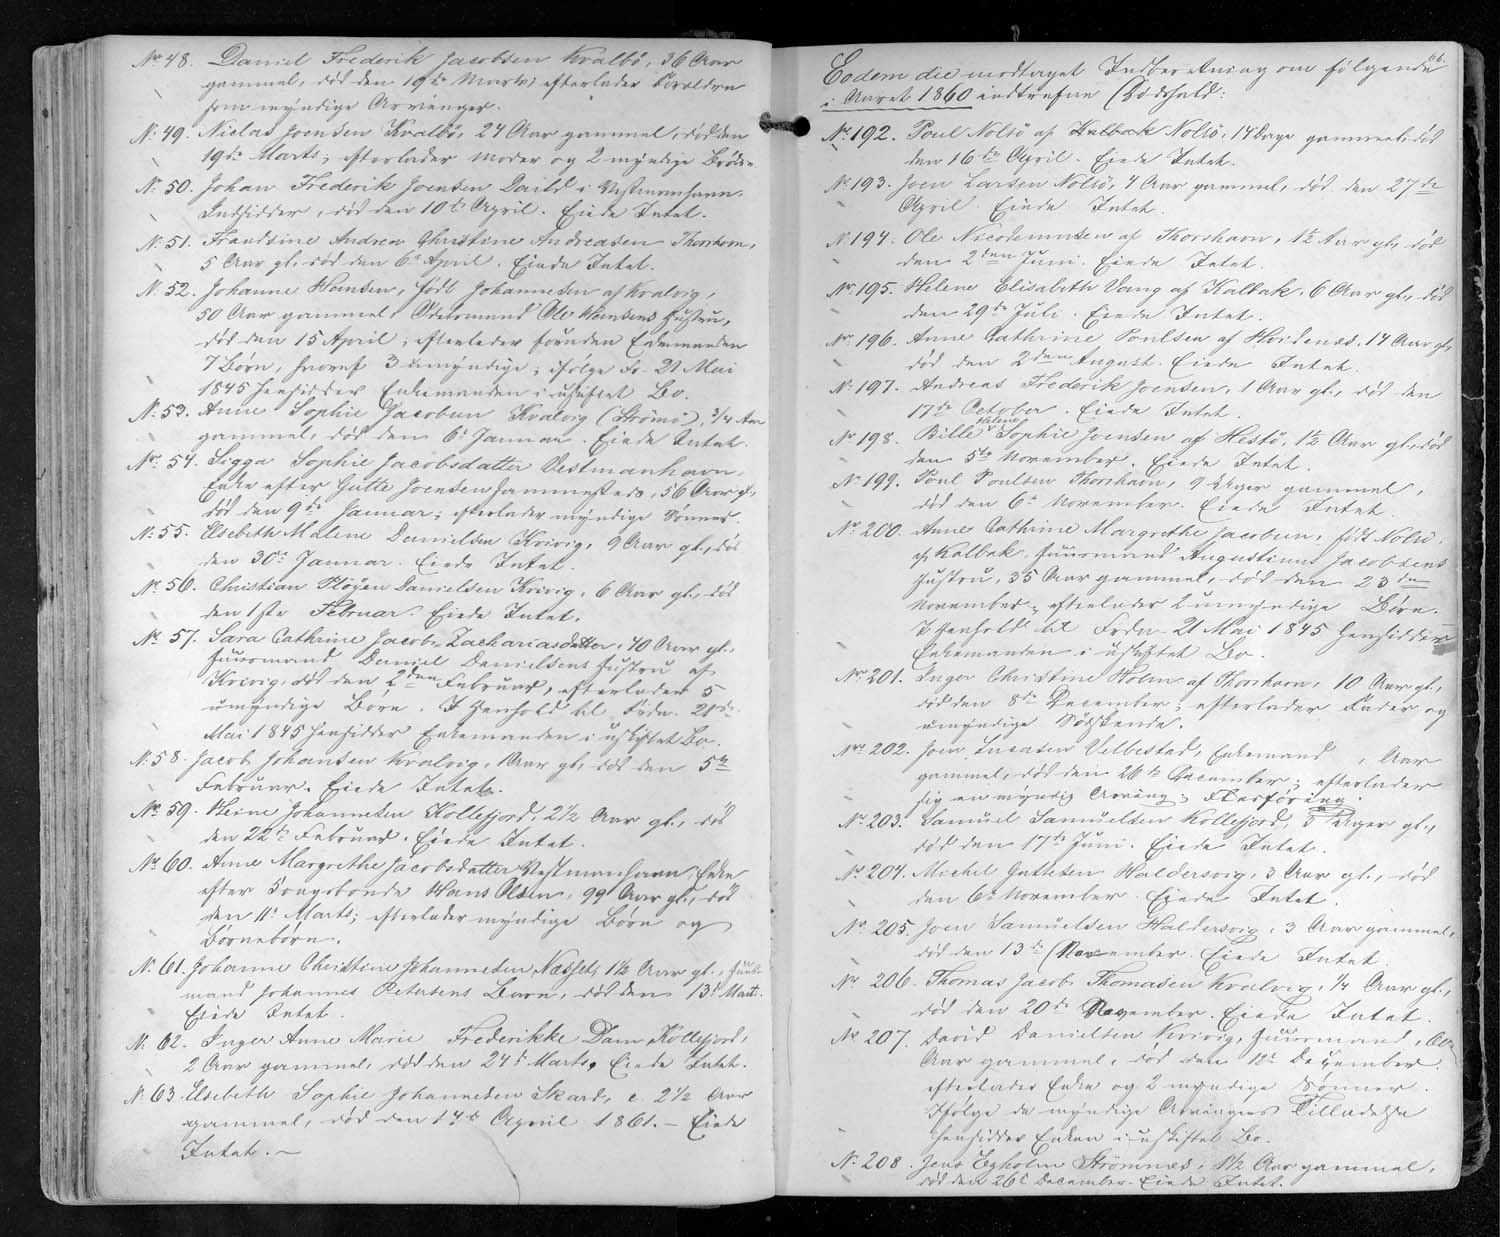 Nr 48. Daniel Frederik Jacobsen Kvalbö, 36 Aar
gammel, död den 19de Marts; efterlader Forældre
som myndige Arvinger.
N. 49. Niclas Joensen Kvalbö, 24 Aar gammel, död den
19de Marts; efterlader Moder og 2 myndige Brödre
N. 50. Johan Frederik Joensen i Vestmanhavn.
Indsidder, död den 10de April. Eiede Intet.
N. 51. Frandsine Andrea Christine Andreasen Thorshavn,
5 Aar gl., död den 6te April. Eiede Intet.
N. 52. Johanne Hansen, född Johannesen af Kvalvig,
50 Aar gammel, Ole Hansens Hustru,
död den 15 April; efterlader foruden Enkemanden
7 Börn, hvoraf 3 umyndige; ifölge Fr. 21 Mai
1845 hensidder Enkemanden i uskiftet Bo.
N. 53. Anne Sophie Jacobsen Kvalvig (Strömö), 3/4 Aar
gammel, död den 6te Januar. Eiede Intet.
Nr. 54. Sigga Sophie Jacobsdatter Vestmanhavn,
Enke efter Gutte Joensen sammesteds, 56 Aar gl.,
död den 9de Januar; efterlader myndige Sönner.
N. 55. Elsebeth Malene Danielsen Kvivig, 9 Aar gl., död
den 30te Januar. Eiede Intet.
N. 56. Christian Plöyen Danielsen Kvivig, 6 Aar gl., död
den 1ste Februar. Eiede Intet.
Nr. 57. Sara Cathrine Jacob-Zachariasdatter, 40 Aar gl.,
Huusmand Daniel Danielsens Hustru af
Kvivig, död den 2den Februar, efterlader 5
umyndige Börn. I Henhold til Frdn. 21de
Mai 1845 hensidder Enkemanden i uskiftet Bo.
N. 58. Jacob Johansen Kvalvig, Aar gl., död den 5te
Februar. Eiede Intet.
Nr. 59. Heine Johannesen Kollefjord, 2½ Aar gl., död
den 22de Februar. Eiede Intet.
Nr 60. Anne Margrethe Jacobsdatter Vestmanhavn, Enke
efter Kongsbonde Hans Olsen, 99 Aar gl., död
den 11te Marts; efterlader myndige Börn og
Börnebörn.
N. 61. Johanne Christine Johannesen, Næsset, 1½ Aar gl., Huus-
mand Johannes Petersens Barn, död den 13de Marts.
Eiede Intet.
N. 62. Inger Anne Marie Frederikke Dam, Kollefjord,
2 Aar gammel, död den 24de Marts. Eiede Intet.
N. 63. Elsebeth Sophie Johannesen Skard, c. 2½ Aar
gammel, död den 14de April 1861. – Eiede
Intet. –
66.
Eodem die modtaget Indberetning om fölgende
i Aaret 1860 indtrufne Dödsfald:
Nr. 192. Poul Nolsö af Nolsö, 14 Dage gammel, död
den 16de April. Eiede Intet.
Nr. 193. Joen Larsen Nolsö, 4 Aar gammel, död den 27de
April. Eiede Intet.
N. 194. Ole Nicodemusen af Thorshavn, 1½ Aar gl., död
den 2den Juni. Eiede Intet.
Nr. 195. Helene Elisabeth Vang af Kalbak, 6 Aar gl., död
den 29de Juli. Eiede Intet.
Nr 196. Anne Cathrine Poulsen af Hvidenæs, 14 Aar gl.,
död den 2den August. Eiede Intet.
N. 197. Andreas Frederik Joensen, 1 Aar gl., död den
17de October. Eiede Intet.
Nr 198. Bille Malene Sophie Joensen af Hestö, 1½ Aar gl., död
den 5te November. Eiede Intet.
Nr 199. Poul Poulsen Thorshavn, 9 Uger gammel,
död den 6te November. Eiede Intet.
Nr 200. Anne Cathrine Margrethe Jacobsen, född Nolsö,
af Kalbak, Huusmand Augustinus Jacobsens
Hustru, 35 Aar gammel, död den 23de
November; efterlader 2 umyndige Börn.
I Henhold til Frdn. 21 Mai 1845 hensidder
Enkemanden i uskiftet Bo.
Nr. 201. Inger Christine Holm af Thorshavn, 10 Aar gl.,
död den 8de December; efterlader Fader og
umyndige Södskende.
Nr. 202. Joen Lucasen Velbestad, Enkemand , Aar
gammel, död den 26de December; efterlader
sig en myndig Arving;
Nr 203. Samuel Samuelsen Kollefjord, 5 Uger gl.,
död den 17de Juni. Eiede Intet.
N. 204. Michel Guttesen Haldersvig, 3 Aar gl., död
den 6te November. Eiede Intet.
Nr 205. Joen Samuelsen Haldersvig, 3 Aar gammel,
död den 13de November. Eiede Intet.
Nr 206. Thomas Jacob Thomasen Kvalvig, ¼ Aar gl.,
död den 20de November. Eiede Intet.
Nr 207. David Danielsen Kvivig, Huusmand,
Aar gammel, död den 12te December.
efterlader Enke og 2 myndige Sönner.
Ifölge de myndige Arvingers Tilladelse
hensidder Enken i uskiftet Bo.
N. 208. Jens Egholm Strömnæs, 1½ Aar gammel,
död den 26de December. Eiede Intet.